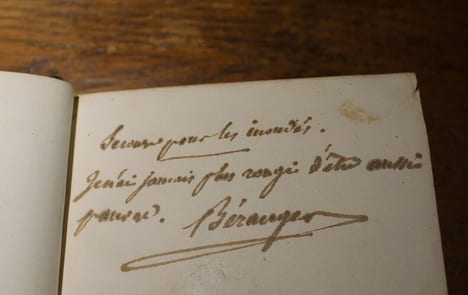 Secours pour les inondés.
Je n'ai jamais plus rougi d'être aussi
pauvre. Béranger